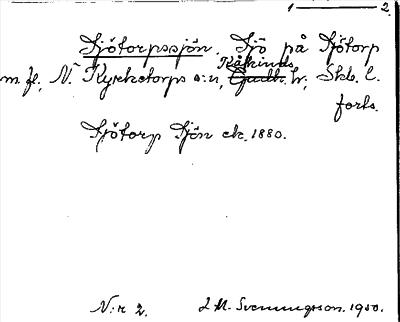 1 ——— 2.
Sjötorpssjön. Sjö på Sjötorp
Kåkinds
m. fl., N. Kyrketorps s:n, Gudh. hr, Skb. l.
forts.
Sjötorp Sjön ek. 1880.
N:r 2. J. M. Svenningsson. 1930.